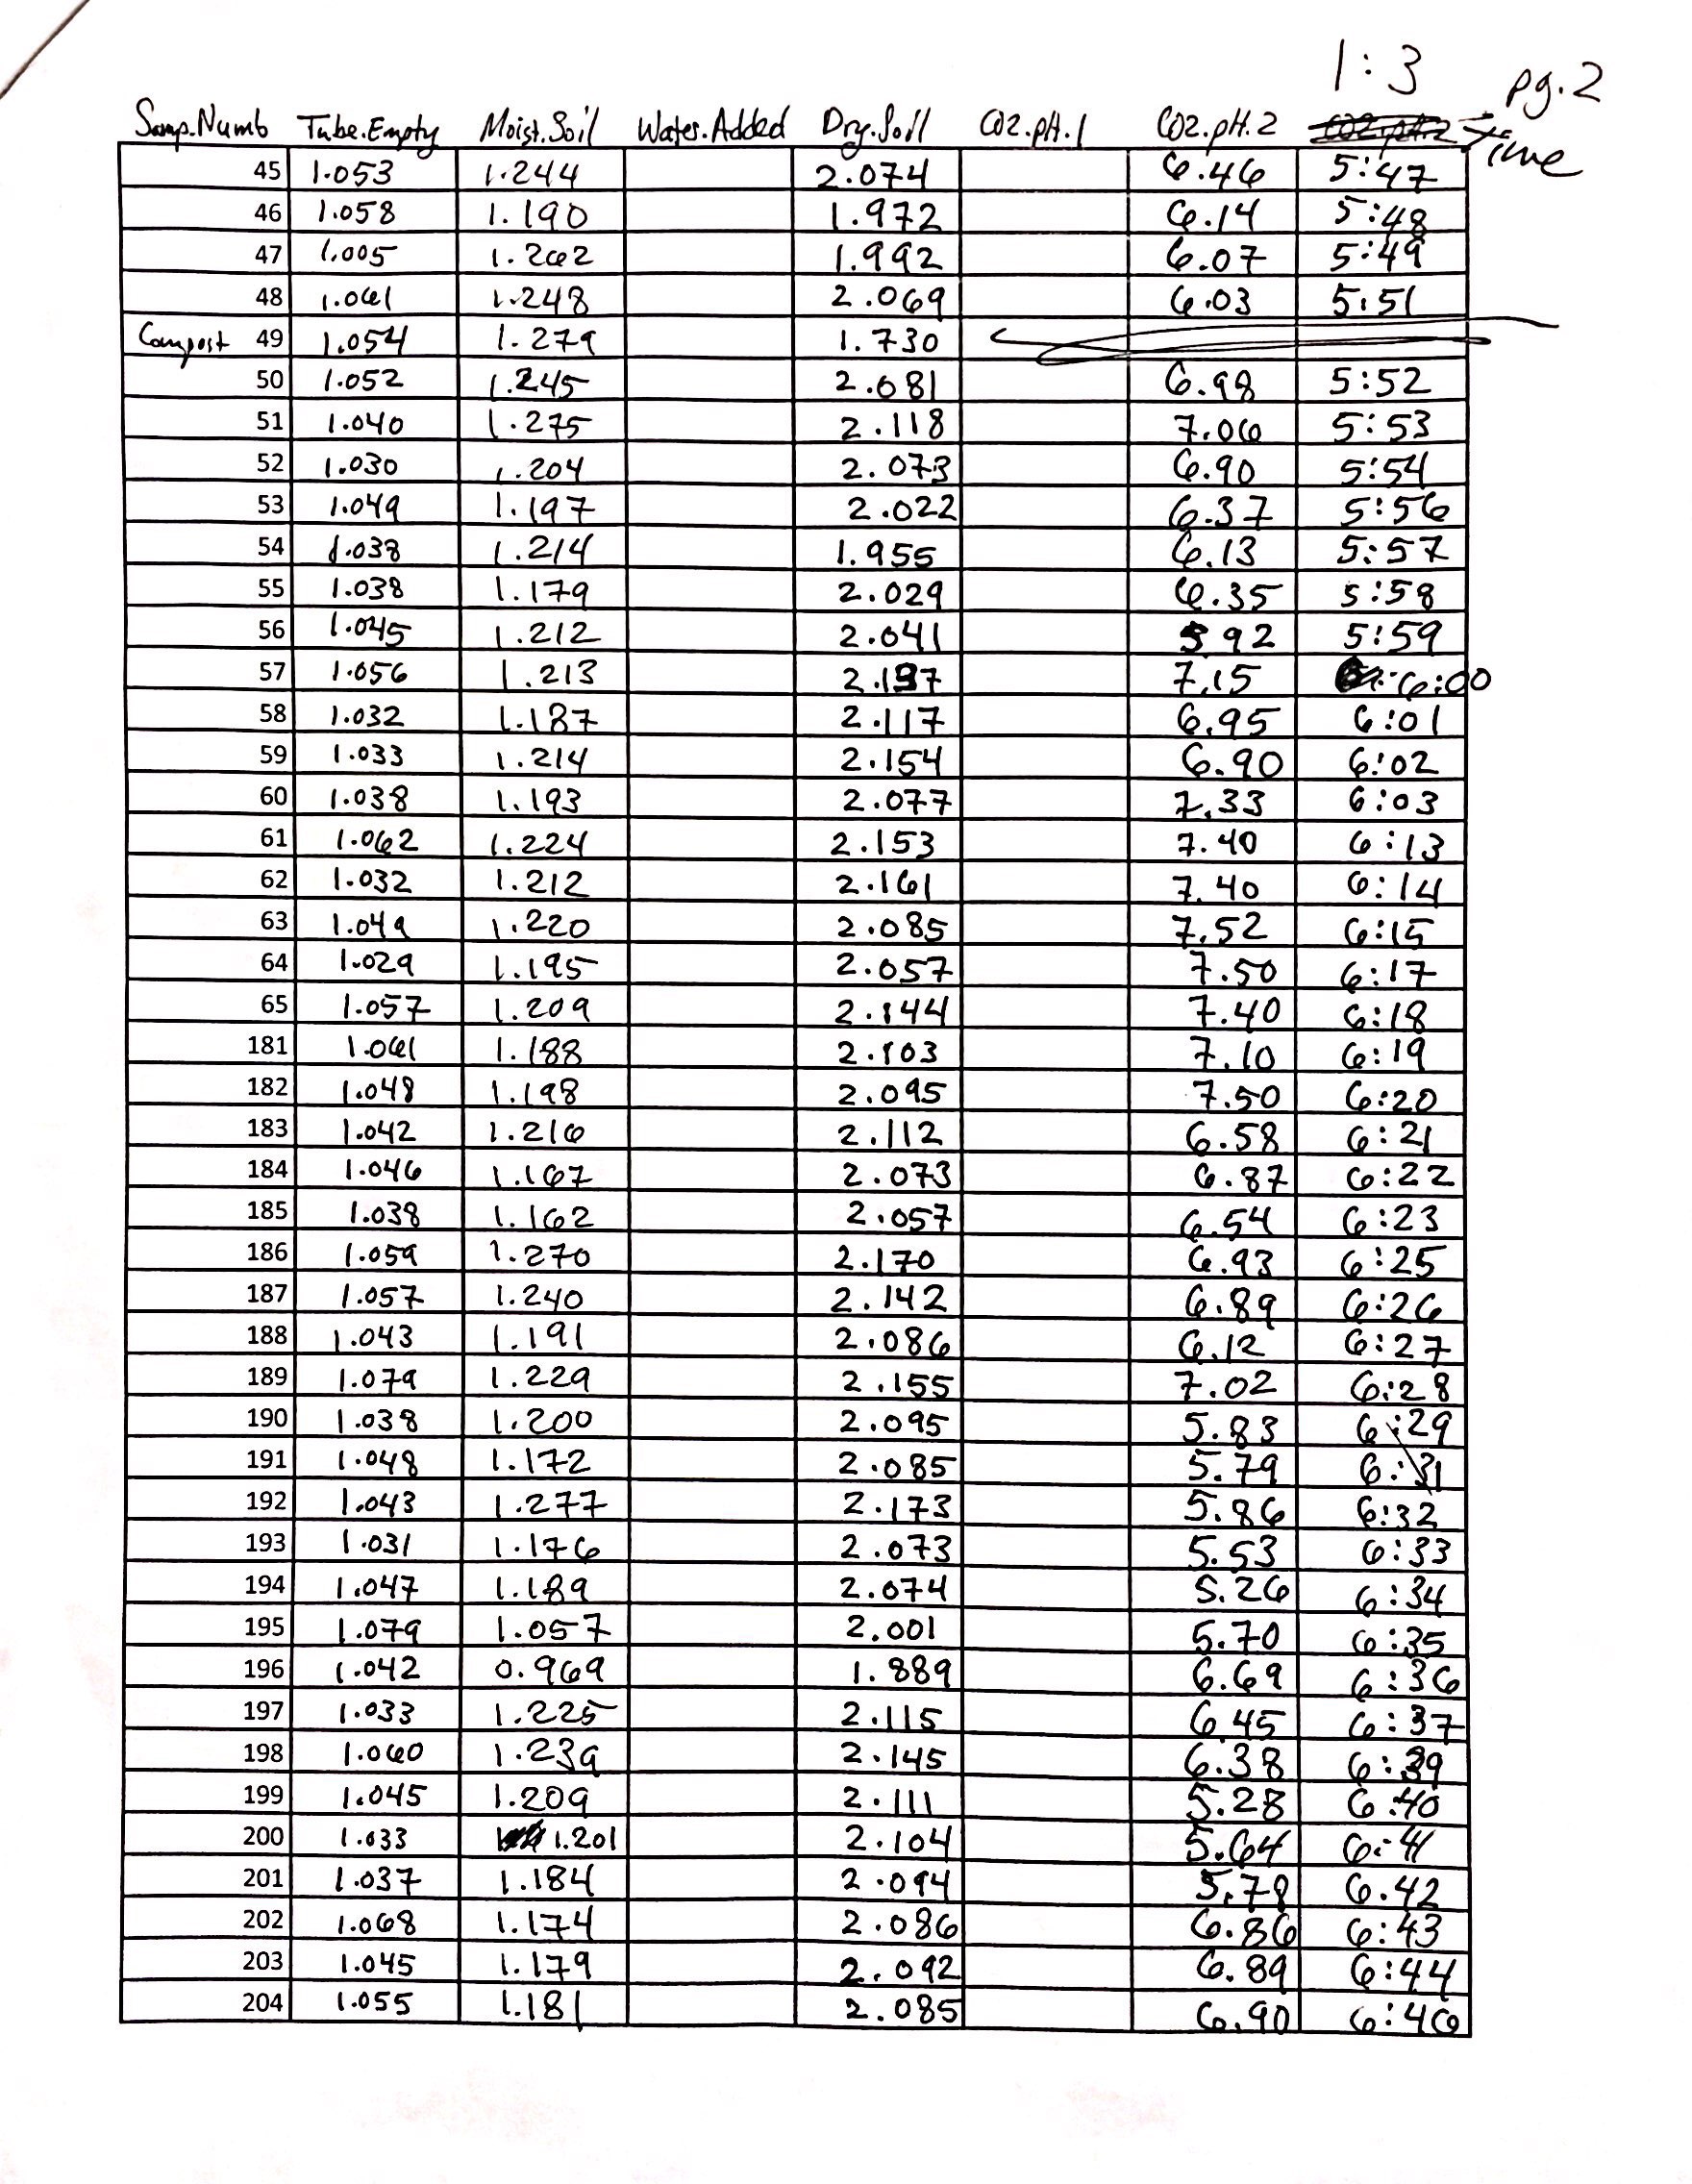 1:3 pg.2
Samp.Numb Tube.Empty Moist.Soil Water.Added Dry.Soil CO2.pH.1 CO2.pH.2 CO2.pH.2 Time
45 1.053 1.244 2.074 6.46 5:47
46 1.058 1.190 1.972 6.14 5:48
47 1.005 1.262 1.992 6.07 5:49
48 1.061 1.248 2.069 6.03 5:51
Compost 49 1.054 1.279 1.730
50 1.052 1.245 2.081 6.98 5:52
51 1.040 1.275 2.118 7.06 5:53
52 1.030 1.204 2.073 6.90 5:54
53 1.049 1.197 2.022 6.37 5:56
54 1.038 1.214 1.955 6.13 5:57
55 1.038 1.179 2.029 6.35 5:58
56 1.045 1.212 2.041 5.92 5:59
57 1.056 1.213 7.15 6:00
58 1.032 1.187 2.117 6.95 6:01
59 1.033 1.214 2.154 6.90 6:02
60 1.038 1.193 2.077 7.33 6:03
61 1.062 1.224 2.153 7.40 6:13
62 1.032 1.212 2.161 7.40 6:14
63 1.049 1.220 2.085 7.52 6:15
64 1.029 1.195 2.057 7.50 6:17
65 1.057 1.209 2.144 7.40 6:18
181 1.061 1.188 2.103 7.10 6:19
182 1.048 1.198 2.095 7.50 6:20
183 1.042 1.216 2.112 6.58 6:21
184 1.046 1.167 2.073 6.87 6:22
185 1.038 1.162 2.057 6.54 6:23
186 1.059 1.270 2.170 6.93 6:25
187 1.057 1.240 2.142 6.89 6:26
188 1.043 1.191 2.086 6.12 6:27
189 1.079 1.229 2.155 7.02 6:28
190 1.038 1.200 2.095 5.83 6:29
191 1.048 1.172 2.085 5.79 6:31
192 1.043 1.277 2.173 5.86 6:32
193 1.031 1.176 2.073 5.53 6:33
194 1.047 1.189 2.074 5.26 6:34
195 1.079 1.057 2.001 5.70 6:35
196 1.042 0.969 1.889 6.69 6:36
197 1.033 1.225 2.115 6.45 6:37
198 1.060 1.239 2.145 6.38 6:39
199 1.045 1.209 2.111 5.28 6:40
200 1.033 1.201 2.104 5.64 6:41
201 1.037 1.184 2.094 5.78 6.42
202 1.068 1.174 2.086 6.86 6:43
203 1.045 1.179 2.092 6.89 6:44
204 1.055 1.181 2.085 6.90 6:46